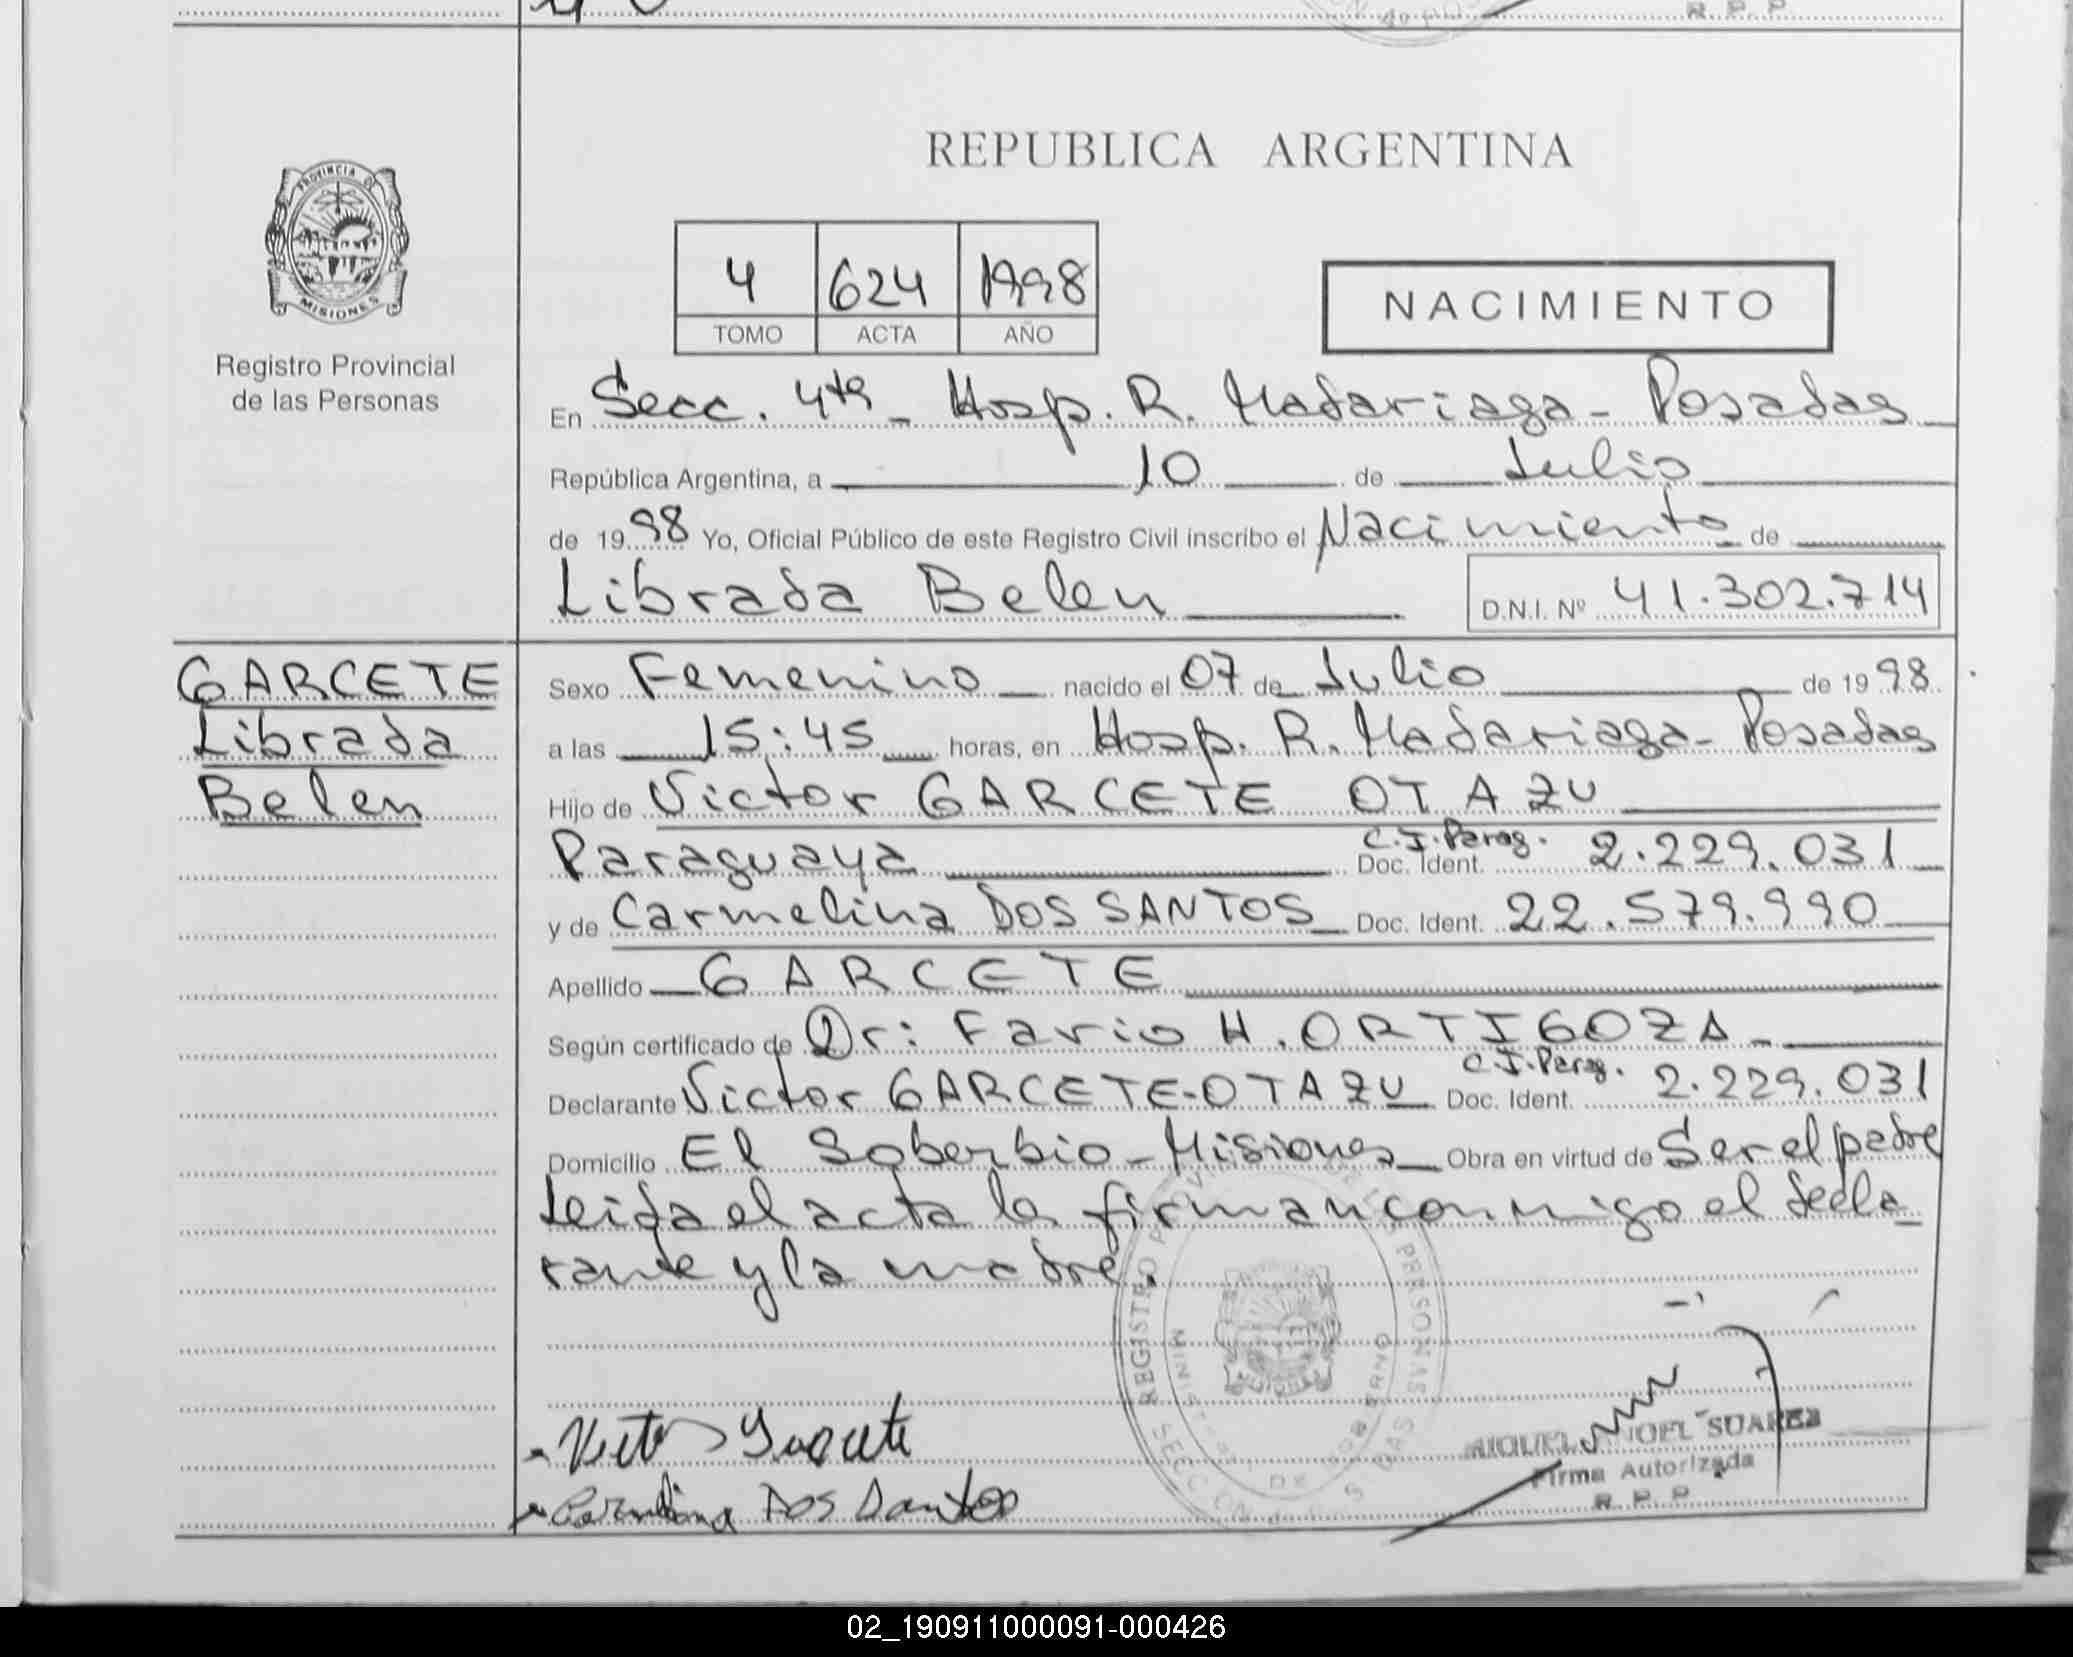 R. P. P.
PROVINCIA DE
MISIONES
Registro Provincial
de las Personas
REPUBLICA ARGENTINA
4 624 1998
TOMO ACTA AÑO
NACIMIENTO
En Secc. 4ta - Hosp. R. Madariaga - Posadas
República Argentina, a 10 de Julio
de 1998 Yo, Oficial Público de este Registro Civil inscribo el Nacimiento de
Librada Belen D.N.I. Nº 41.302.714
GARCETE
Librada
Belen
Sexo Femenino nacido el 07 de Julio de 1998
a las 15:45 horas, en Hosp. R. Madariaga - Posadas
Hijo de Victor GARCETE OTAZU
Paraguaya C.I. Parag. Doc. Ident. 2.229.031
y de Carmelina DOS SANTOS Doc. Ident. 22.579.990
Apellido GARCETE
Según certificado de Dr: Fario H. ORTIGOZA -
Declarante Victor GARCETE-OTAZU C.I. Parag. Doc. Ident. 2.229.031
Domicilio El Soberbio - Misiones Obra en virtud de Ser el padre
Leida el acta la firman conmigo el decla
rante y la madre.
REGISTRO PROVINCIAL DE LAS PERSONAS
MINISTERIO DE GOBIERNO
SECCION 4ta POSADAS
Victor Garcete
Carmelina Dos Santos
MIGUEL ANGEL SUAREZ
Firma Autorizada
R. P. P.
02_190911000091-000426